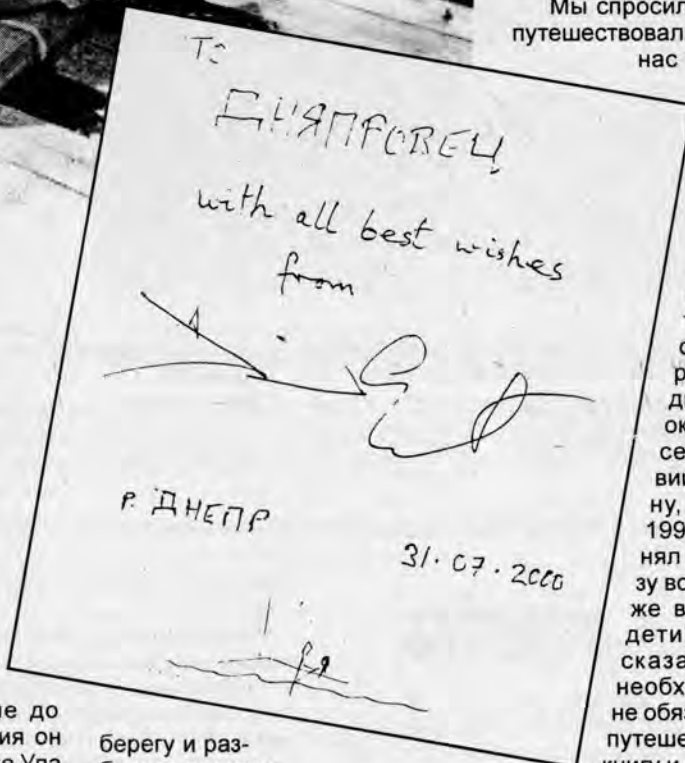 Мы спросил
путешествовал
нас
To
ДНЯПРОВЕЦ
with all best wishes
from
Р. ДНЕПР
31.07.2000
ок
се
ну,
199
нял
зу вс
же в
дети
сказа
необх
не обяз
путеше
до
ия он
Ула
берегу и раз-